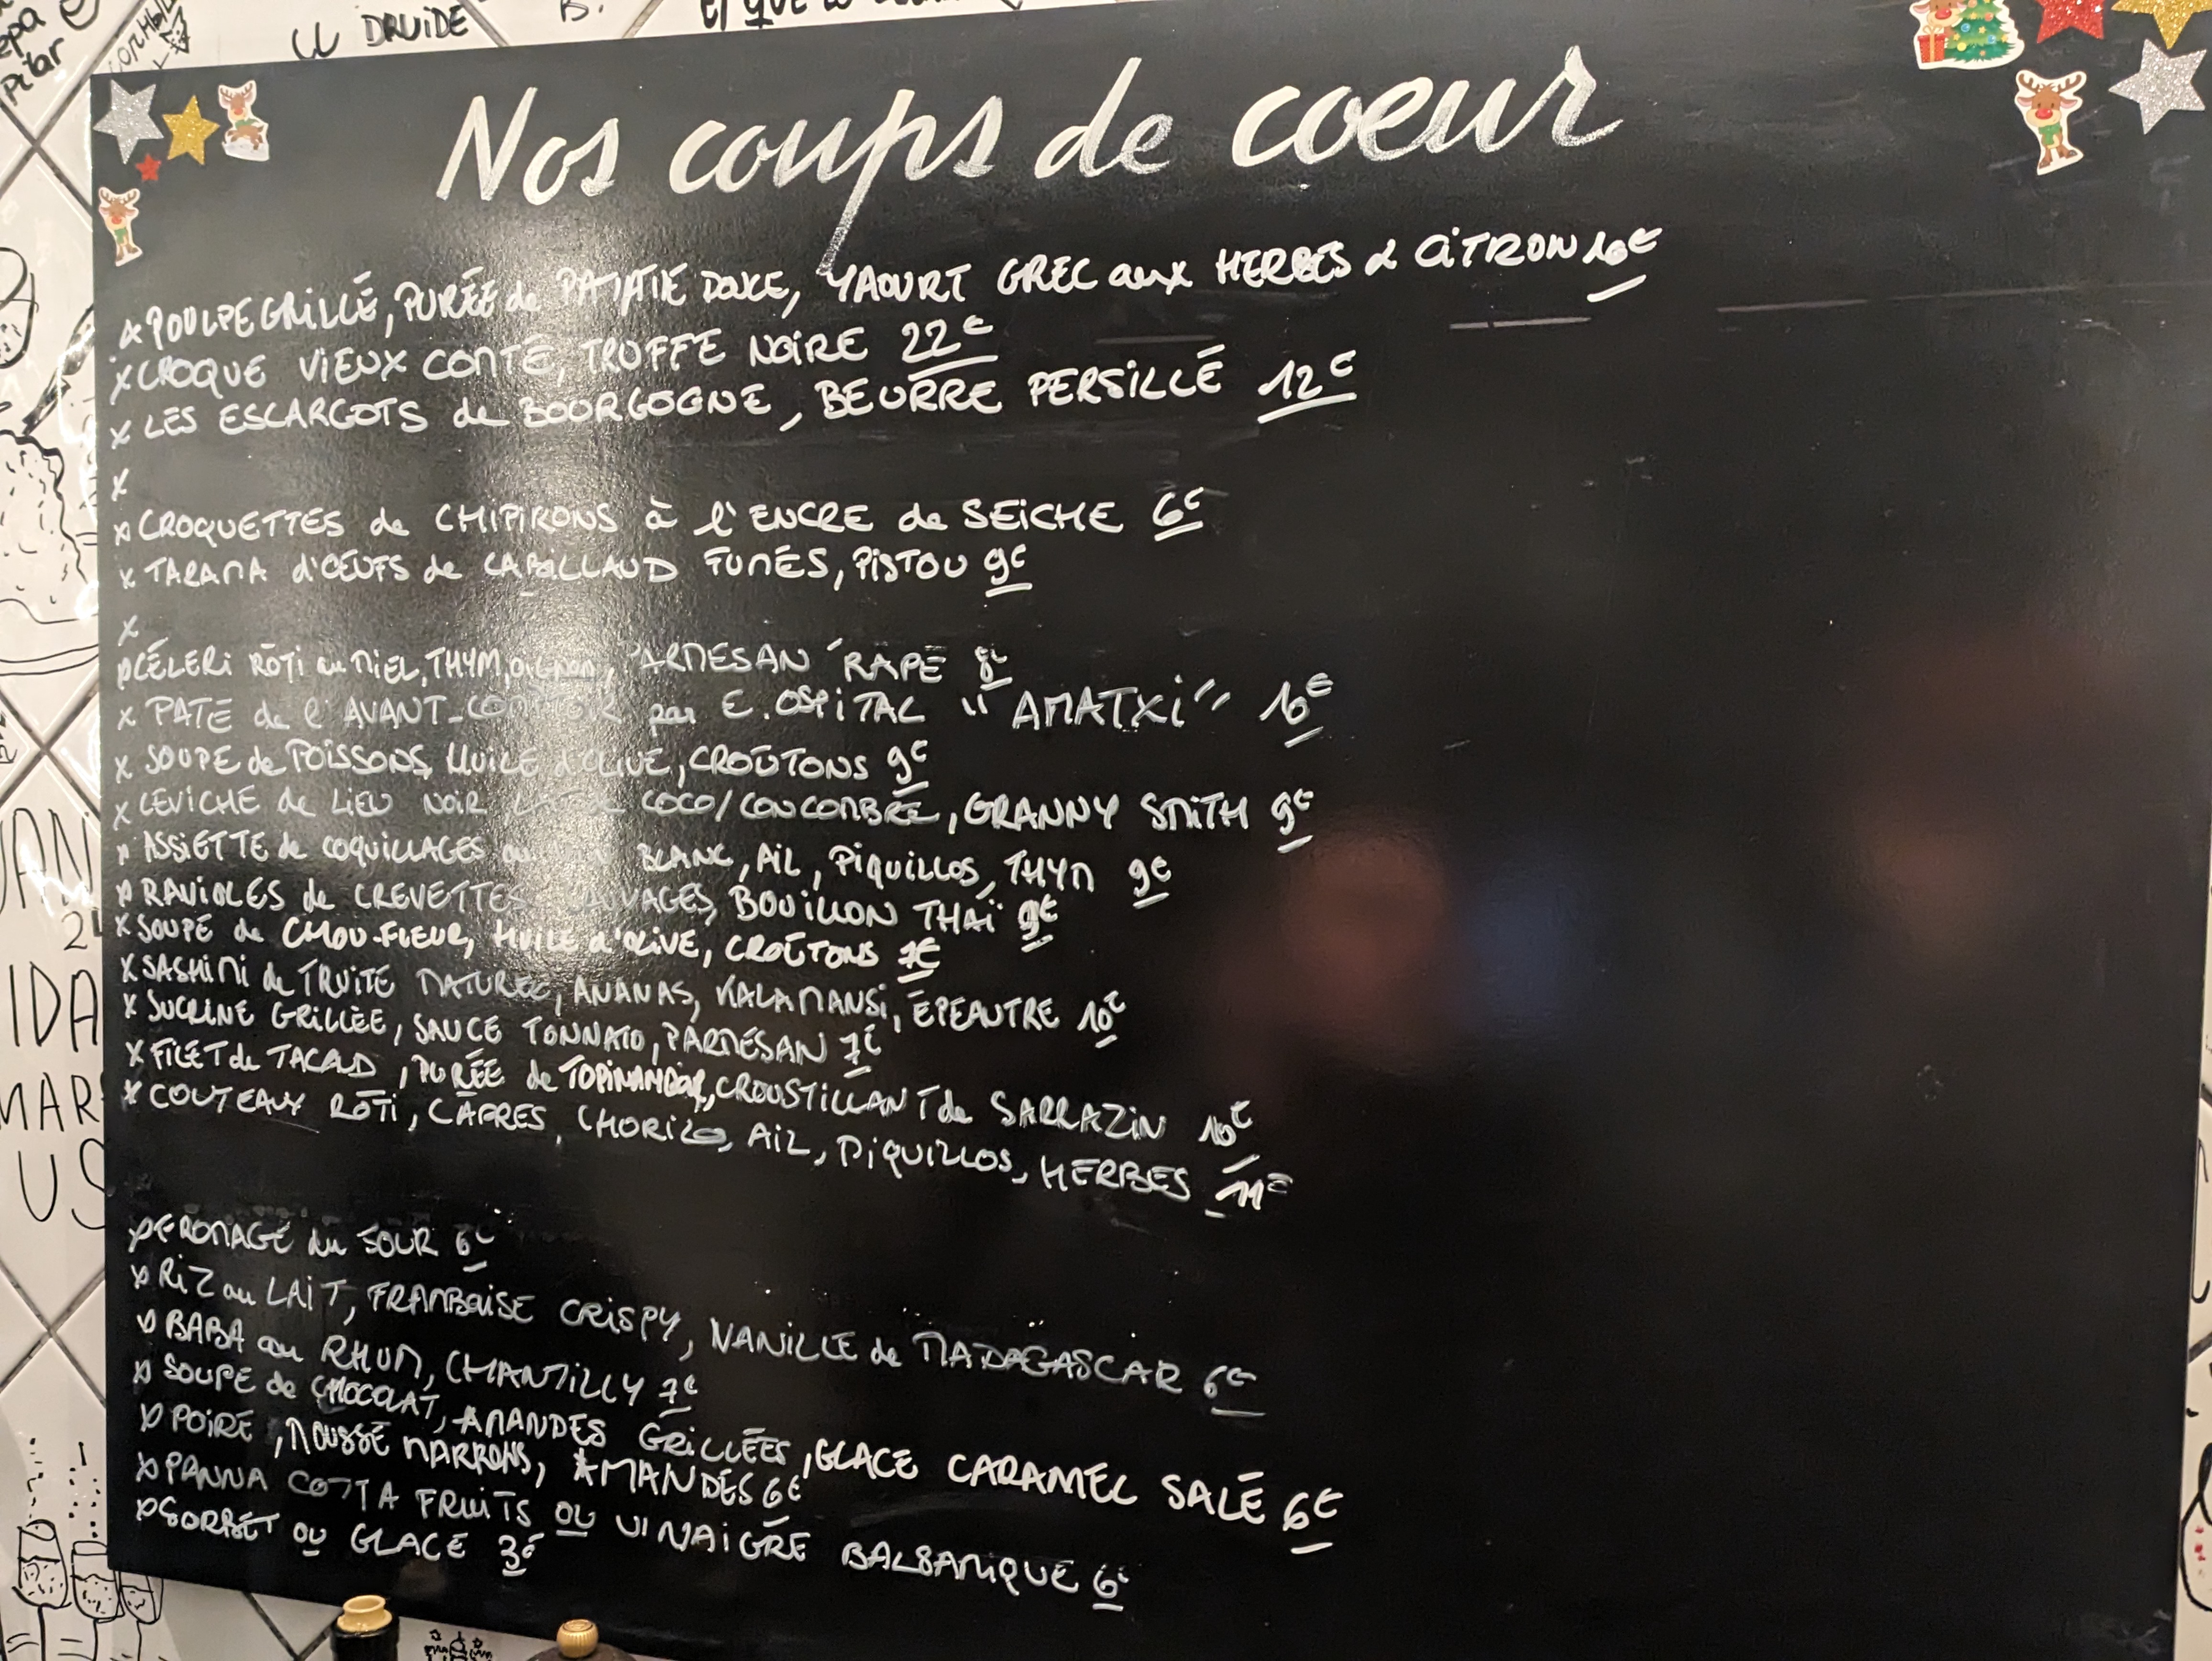 epa
Pilar
LL DRUIDE
B.
Nos coups de coeur
x POULPE GRILLÉ, PURÉE de PATATE DOUCE, YAOURT GREC aux HERBES & CITRON 10€
x CROQUE VIEUX COMTE, TRUFFE NOIRE 22€
x LES ESCARGOTS de BOURGOGNE, BEURRE PERSILLÉ 12€
x
x CROQUETTES de CHIPIRONS à l'ENCRE de SEICHE 6€
x TARAMA d'ŒUFS de CABILLAUD FUMÉS, PISTOU 9€
x
x CÉLERI RÔTI au MIEL, THYM, OIGNON, PARMESAN RAPÉ 8€
x PATÉ de l'AVANT-COMPTOIR par E. OSPITAL "AMATXI" 10€
x SOUPE de POISSONS, HUILE d'OLIVE, CROÛTONS 9€
x CEVICHE de LIEU NOIR COCO/CONCOMBRE, GRANNY SMITH 9€
x ASSIETTE de COQUILLAGES au BLANC, AIL, PIQUILLOS, THYM 9€
x RAVIOLES de CREVETTES SAUVAGES, BOUILLON THAÏ 9€
x SOUPE de CHOU-FLEUR, HUILE d'OLIVE, CROÛTONS 7€
x SASHIMI de TRUITE NATUREL, ANANAS, KALAMANSI, ÉPEAUTRE 10€
x SUCRINE GRILLÉE, SAUCE TONNATO, PARMESAN 7€
x FILET de TACAUD, PURÉE de TOPINAMBOUR, CROUSTILLANT de SARRAZIN 10€
x COUTEAUX RÔTI, CÂPRES, CHORIZO, AIL, PIQUILLOS, HERBES 11€
x FROMAGE du JOUR 6€
x RIZ au LAIT, FRAMBOISE CRISPY, VANILLE de MADAGASCAR 6€
x BABA au RHUM, CHANTILLY 7€
x SOUPE de CHOCOLAT, AMANDES GRILLÉES, GLACE CARAMEL SALÉ 6€
x POIRE, MOUSSE MARRONS, AMANDES 6€
x PANNA COTTA FRUITS OU VINAIGRE BALSAMIQUE 6€
x SORBET OU GLACE 3€
IDA
MAR
US